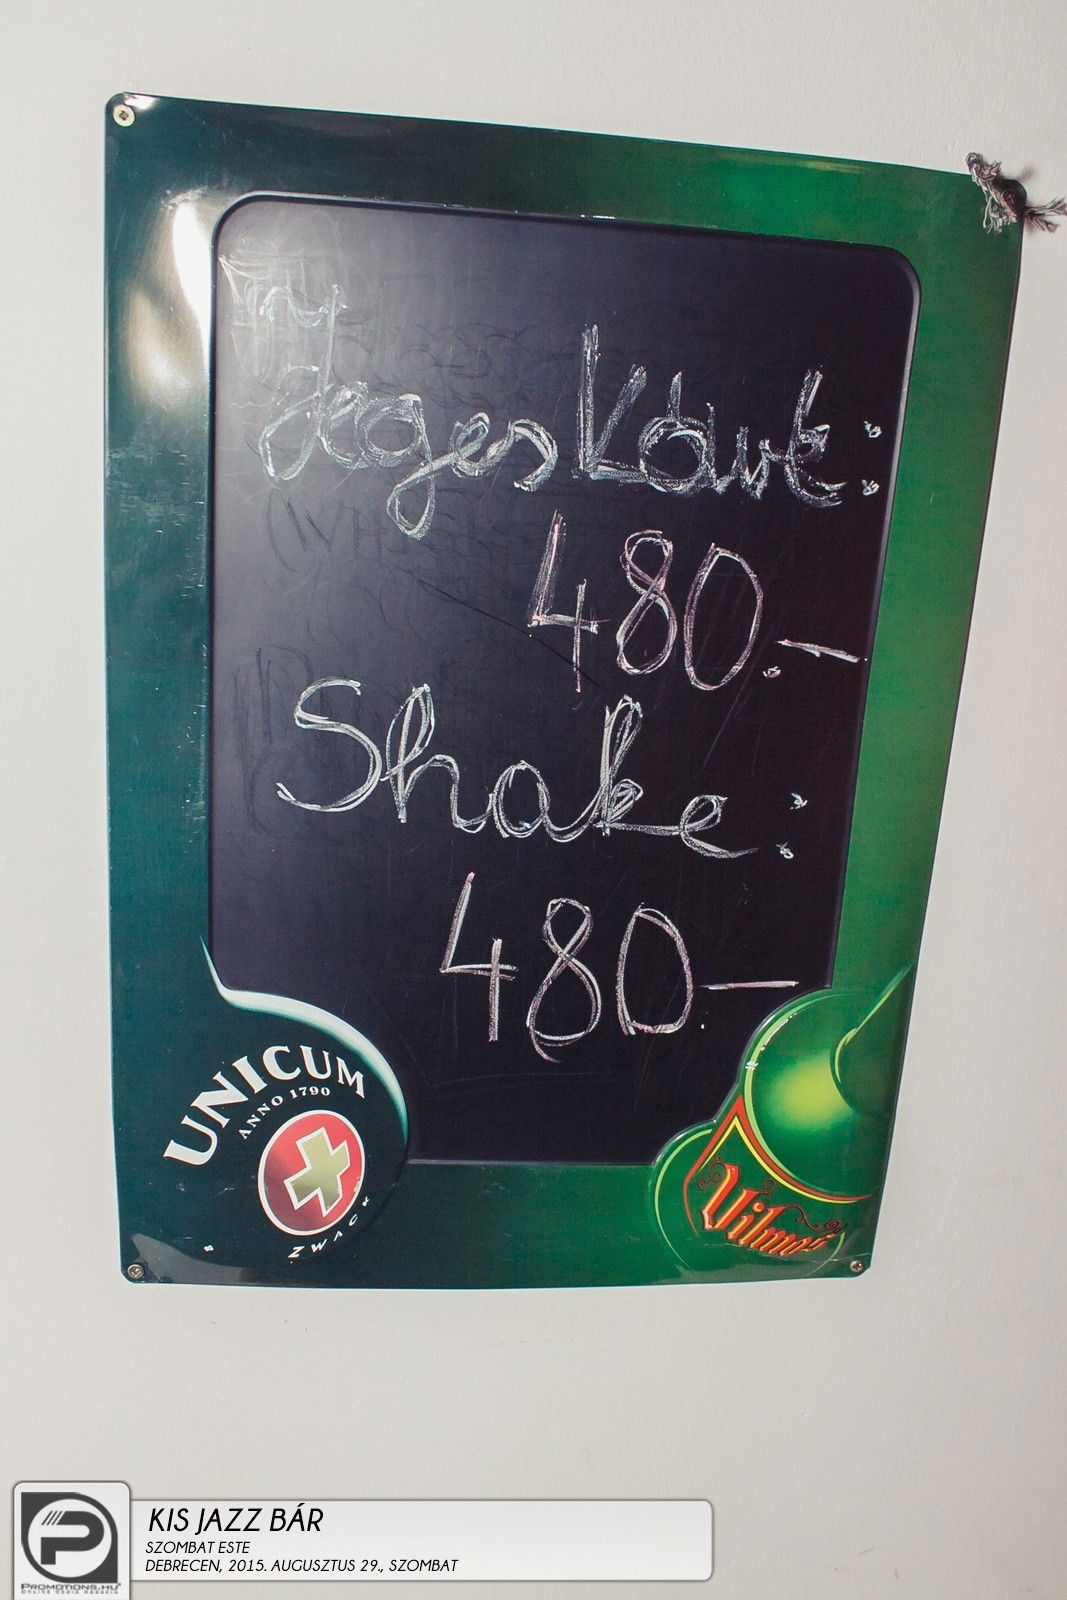 Jegeskávé:
480.-
Shake:
480-
UNICUM
ANNO 1790
ZWACK
Vilmos
KIS JAZZ BÁR
SZOMBAT ESTE
DEBRECEN, 2015. AUGUSZTUS 29., SZOMBAT
PROMOTIONS.HU
ONLINE MEDIA MAGAZIN